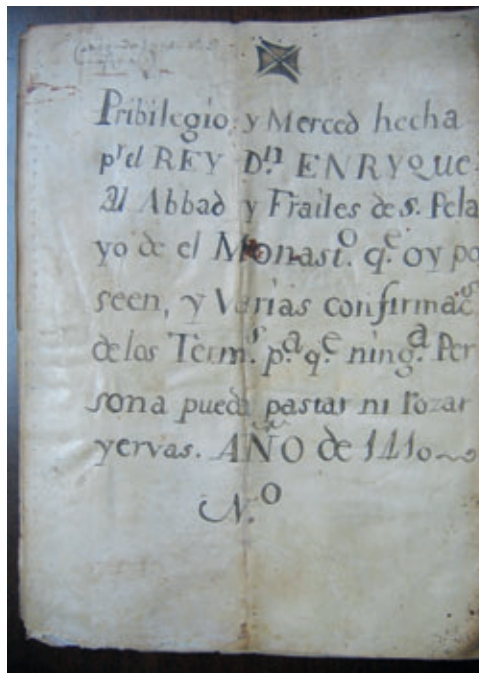 Pribilegio, y Merced hecha
pr el REY Dn. ENRYQUE.
Al Abbad y Frailes de S. Pela
yo de el Monasto. qe. oy po
seen, y Varias confirmacs.
de los Terms. pa. qe. ninga. Per
sona pueda pastar ni rozar
yervas. AÑO de 1410
N.o